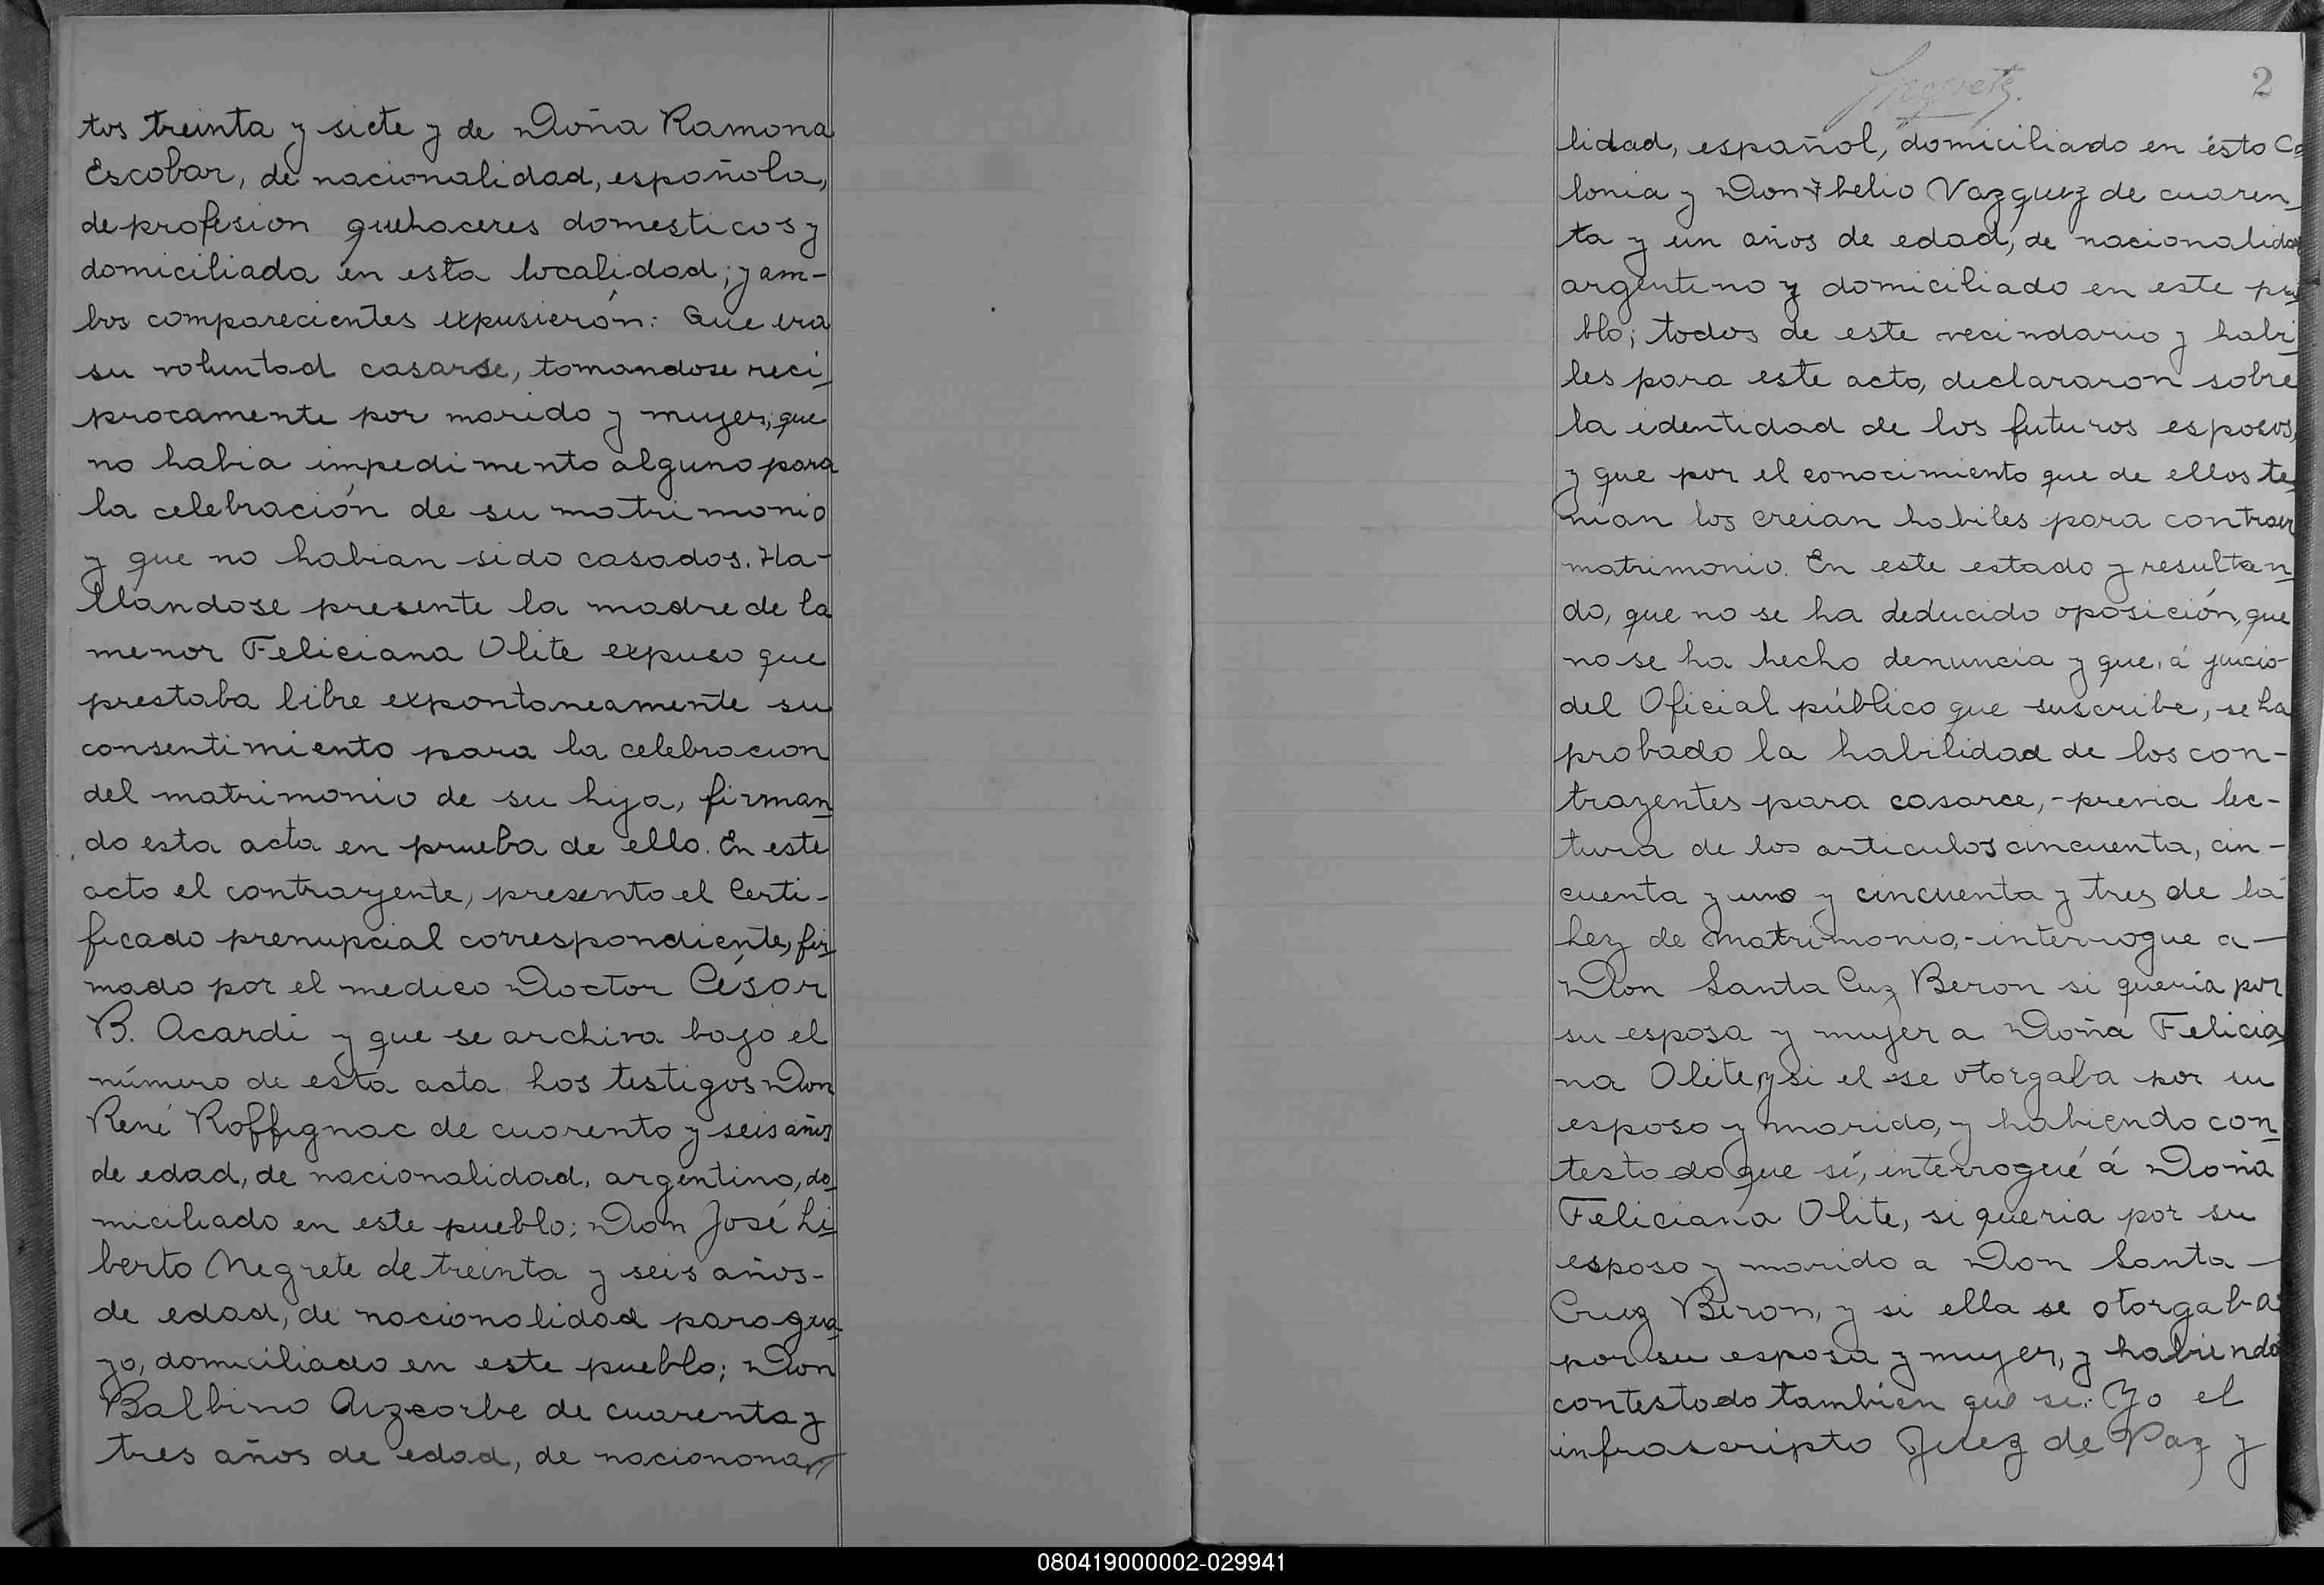 tos treinta y siete y de Doña Ramona
Escobar, de nacionalidad, española,
de profesion quehaceres domesticos y
domiciliada en esta localidad; y am-
bos comparecientes expusierón: Que era
su voluntad casarse, tomandose reci-
procamente por marido y mujer; que
no habia impedimento alguno para
la celebración de su matrimonio
y que no habian sido casados. Ha-
llandose presente la madre de la
menor Feliciana Olite expuso que
prestaba libre expontaneamente su
consentimiento para la celebracion
del matrimonio de su hija, firman-
do esta acta en prueba de ello. En este
acto el contrayente, presento el Certi-
ficado prenupcial correspondiente, fir-
mado por el medico Doctor César
B. Acardi y que se archiva bajo el
número de esta acta. Los testigos Don
René Roffignac de cuarenta y seis años
de edad, de nacionalidad, argentino, do-
miciliado en este pueblo; Don José Li-
berto Negrete de treinta y seis años-
de edad, de nacionalidad paragua-
yo, domiciliado en este pueblo; Don
Balbino Aizcorbe de cuarenta y
tres años de edad, de naciona
2
lidad, español, domiciliado en ésta Co
lonia y Don Vazquez de cuaren-
ta y un años de edad, de nacionalidad
argentino y domiciliado en este pue
blo; todos de este vecindario y habi-
les para este acto, declararon sobre
la identidad de los futuros esposos,
y que por el conocimiento que de ellos te-
nian los creian habiles para contraer
matrimonio. En este estado y resultan-
do, que no se ha deducido oposición, que
no se ha hecho denuncia y que, á juicio-
del Oficial público que suscribe, se ha
probado la habilidad de los con-
trayentes para casarce, - previa lec-
tura de los articulos cincuenta, cin-
cuenta y uno y cincuenta y tres de la
Ley de Matrimonio, - interrogue a -
Don Santa Cuz Beron si queria por
su esposa y mujer a Doña Felicia-
na Olite, y si el se otorgaba por su
esposo y marido, y habiendo con-
testado que sí, interrogué á Doña
Feliciana Olite, si queria por su
esposo y marido a Don Santa -
Cruz Beron, y si ella se otorgaba
por su esposa y mujer, y habiendo
contestado tambien que si: Yo el
infrascripto Juez de Paz y
080419000002-029941